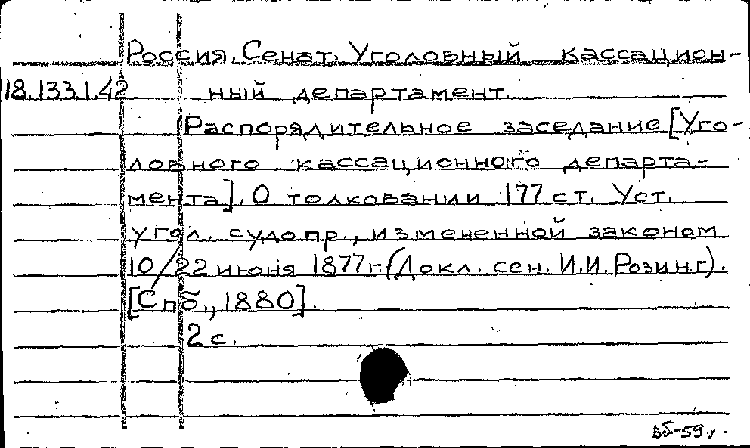 Россия. Сенат. Уголовный кассацион-
18.133.1.42 ный департамент.
Распорядительное заседание [Уго-
ловного кассационного департа-
мента]. О толковании 177 ст. Уст.
угол. судопр., измененной законом
10/22 июня 1877 г. (Докл. сен. И.И. Розинг).
[Спб., 1880].
2 с.